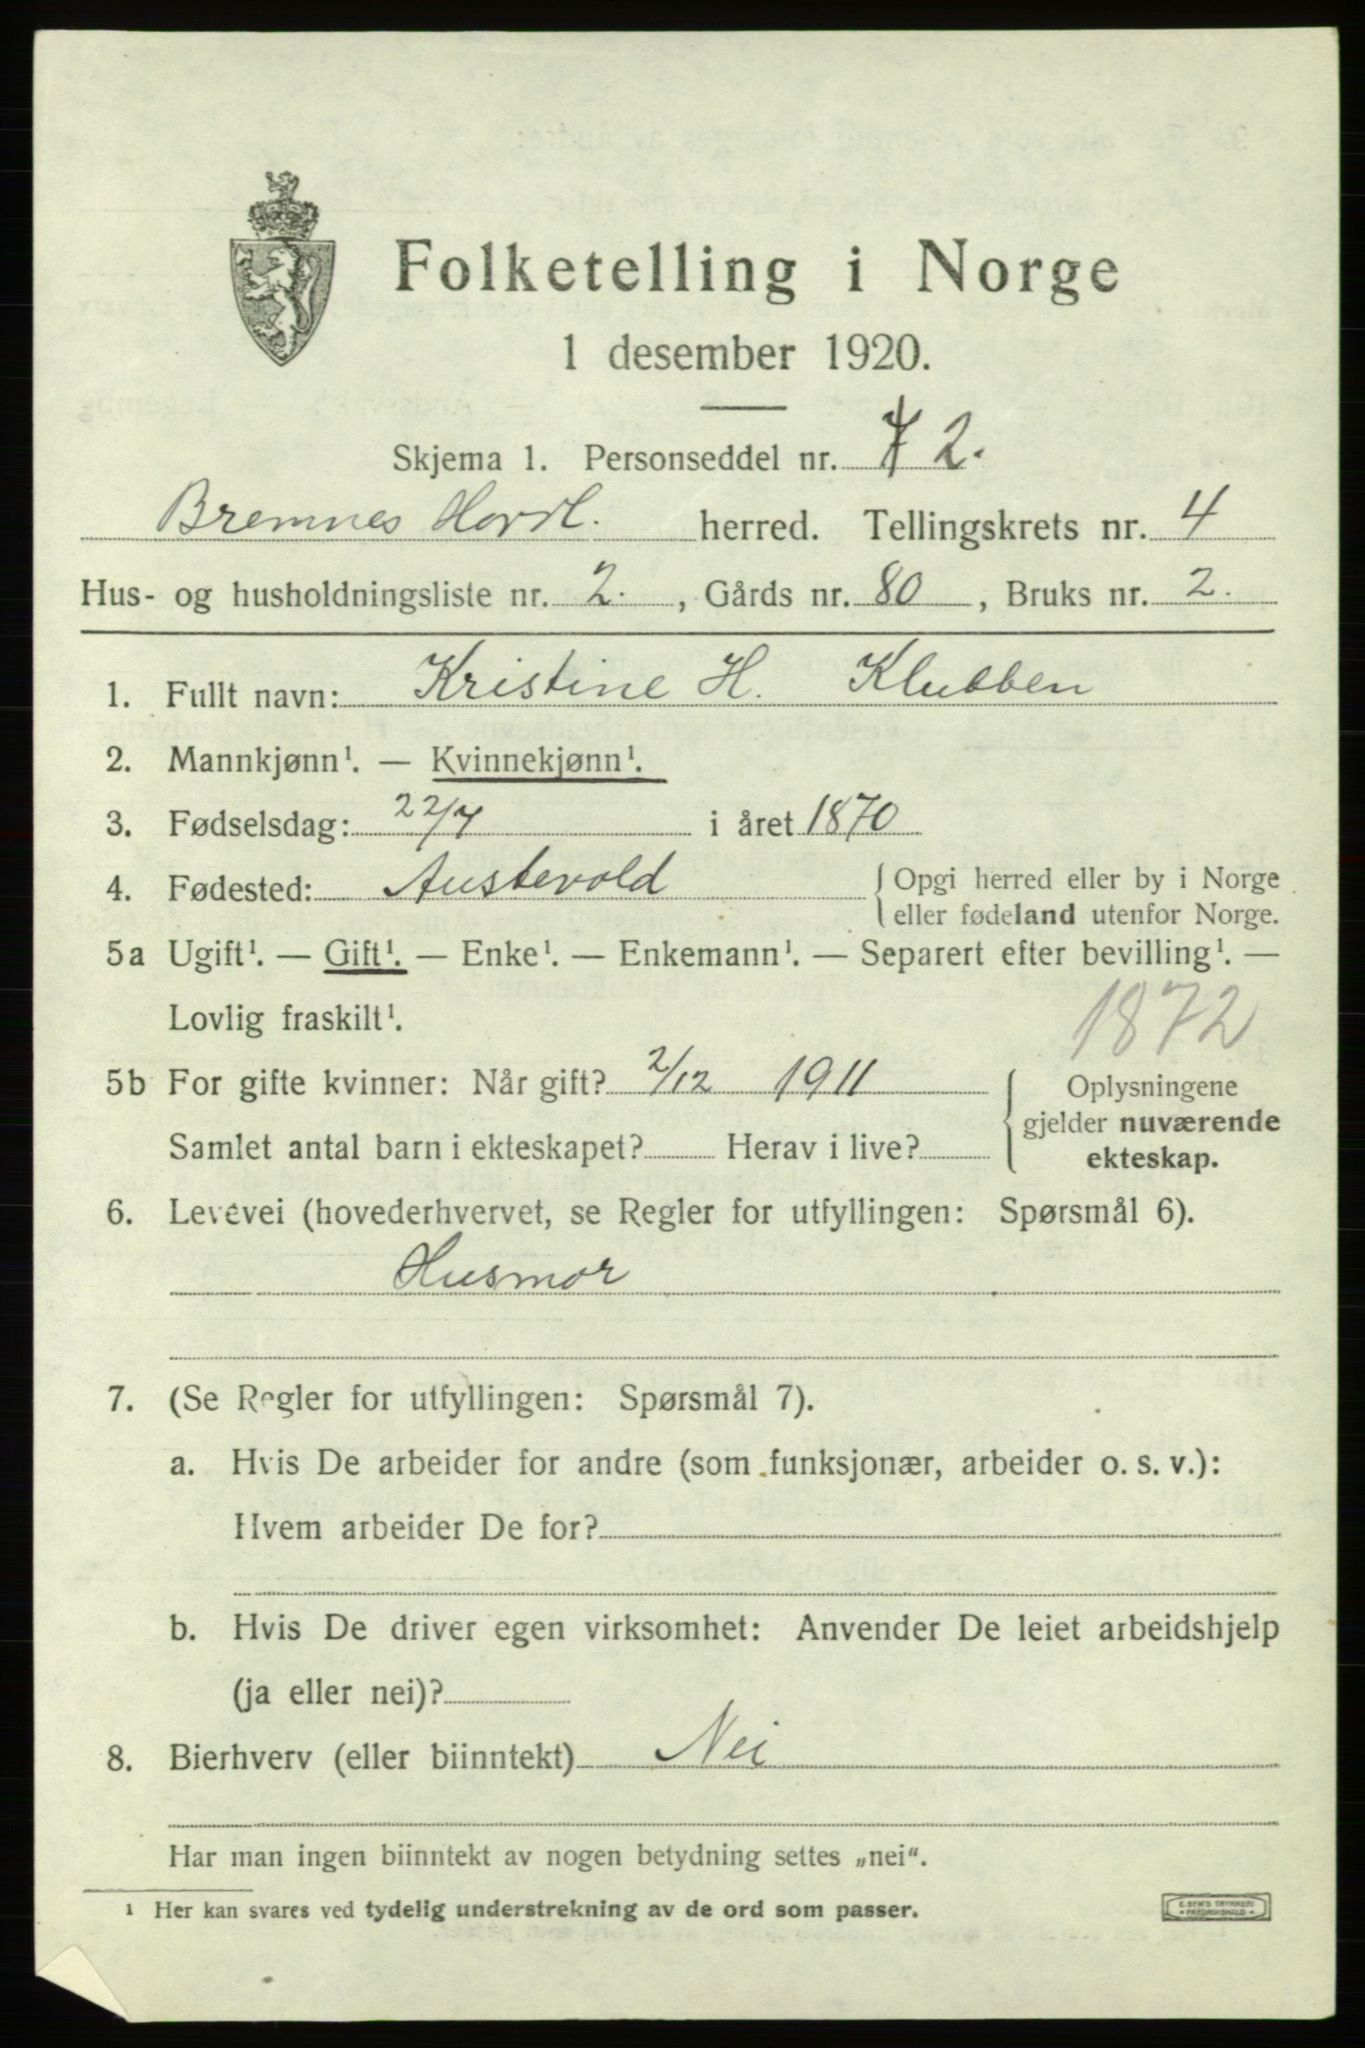 Folketelling i Norge
1 desember 1920.
Skjema 1. Personseddel nr. 2.
Bremnes Hordl. herred. Tellingskrets nr. 4
Hus- og husholdningsliste nr. 2. , Gårds nr. 80 , Bruks nr. 2.
1. Fullt navn: Kristine H. Klubben
2. Mannkjønn¹. — Kvinnekjønn¹.
3. Fødselsdag: 22/7 i året 1870
4. Fødested: Austevold { Opgi herred eller by i Norge
eller fødeland utenfor Norge.
5a Ugift¹. — Gift¹. — Enke¹. — Enkemann¹. — Separert efter bevilling¹. —
Lovlig fraskilt¹.
1872
5b For gifte kvinner: Når gift? 2/12 1911
Samlet antal barn i ekteskapet? Herav i live?
{ Oplysningene
gjelder nuværende
ekteskap.
6. Levevei (hovederhvervet, se Regler for utfyllingen: Spørsmål 6).
Husmor
7. (Se Regler for utfyllingen: Spørsmål 7).
a. Hvis De arbeider for andre (som funksjonær, arbeider o. s. v.):
Hvem arbeider De for?
b. Hvis De driver egen virksomhet: Anvender De leiet arbeidshjelp
(ja eller nei)?
8. Bierhverv (eller biinntekt) Nei
Har man ingen biinntekt av nogen betydning settes „nei“.
¹ Her kan svares ved tydelig understrekning av de ord som passer.